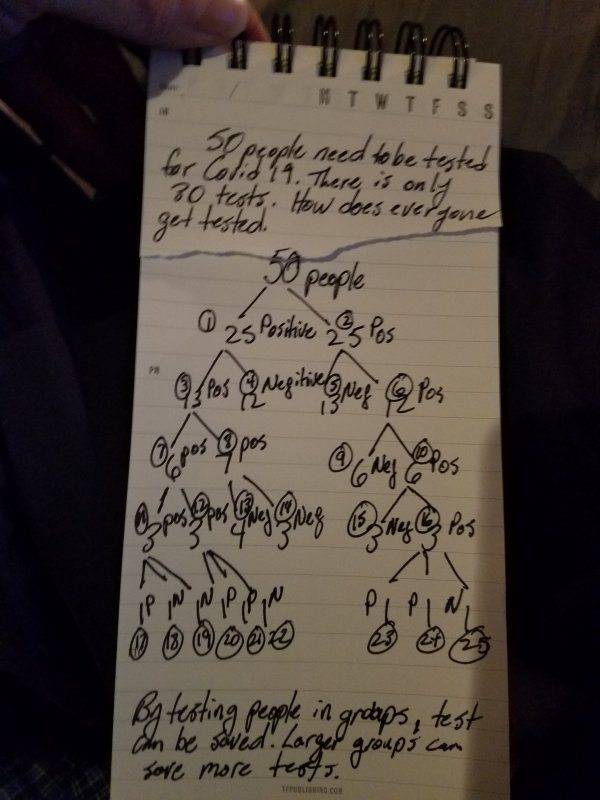 M T W T F S S
50 people need to be tested
for Covid 19. There is only
30 tests. How does everyone
get tested.
50 people
① 25 Positive ② 25 Pos
PM
③ 13 Pos ④ 12 Negitive ⑤ 13 Neg ⑥ 12 Pos
⑦ 6 pos ⑧ 7 pos ⑨ 6 Neg ⑩ 6 Pos
⑪ 3 pos ⑫ 3 pos ⑬ 4 Neg ⑭ 3 Neg ⑮ 3 Neg ⑯ 3 Pos
P N N P P N P P N
⑰ ⑱ ⑲ ⑳ ㉑ ㉒ ㉓ ㉔ ㉕
By testing people in groups, test
can be saved. Larger groups can
save more tests.
TFPUBLISHING.COM